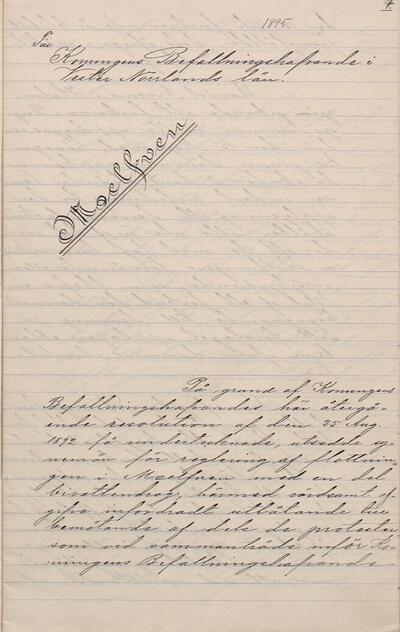 4
1895.
Till
Konungens Befallningshafvande i
Vester Norrlands län.
Moelfven
På grund af Konungens
Befallningshafvandes här återgå-
ende resolution af den 25 Aug.
1892 få undertecknade, utsedde sy-
nemän för reglering af flottnin-
gen i Moelfven med en del
bivattendrag, härmed vördsamt af-
gifva infordradt utlåtande till
bemötande af dels de protester
som vid sammanträde inför Ko-
nungens Befallningshafvande